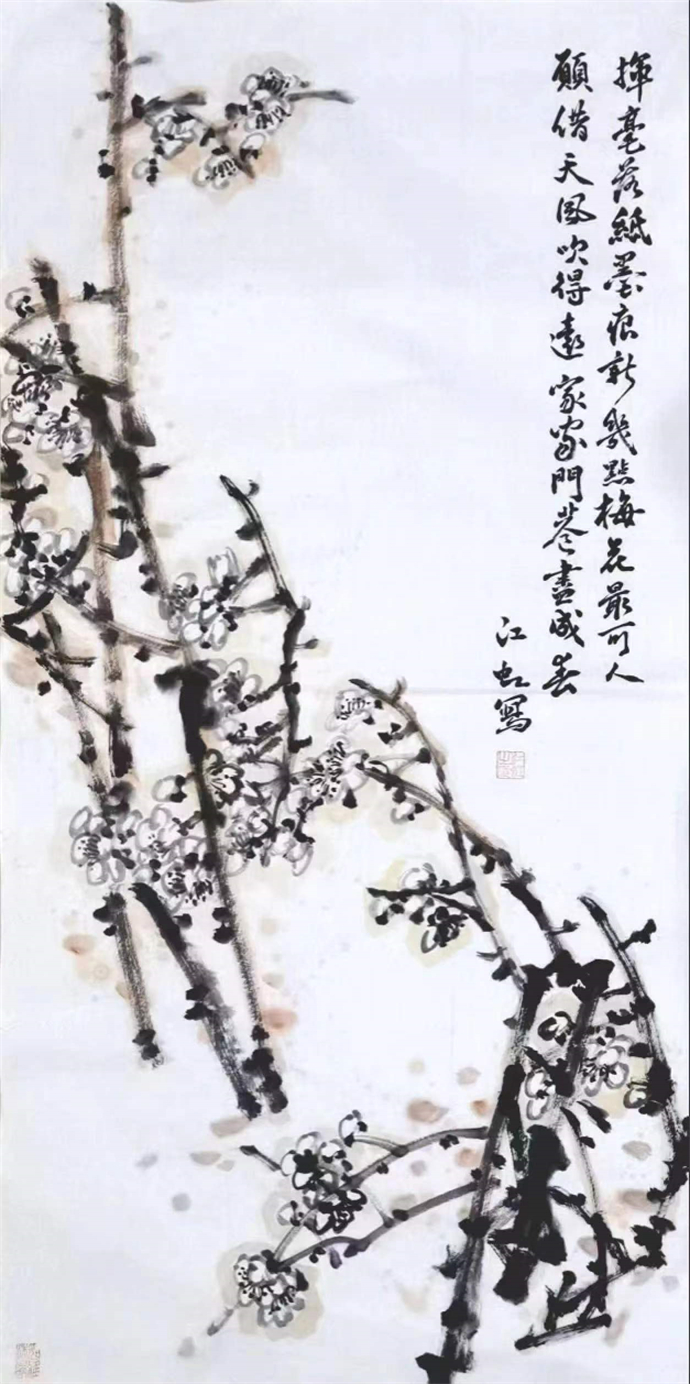 揮毫落紙墨痕新幾點梅花最可人
願借天風吹得遠家家門巷盡成春
江虹寫